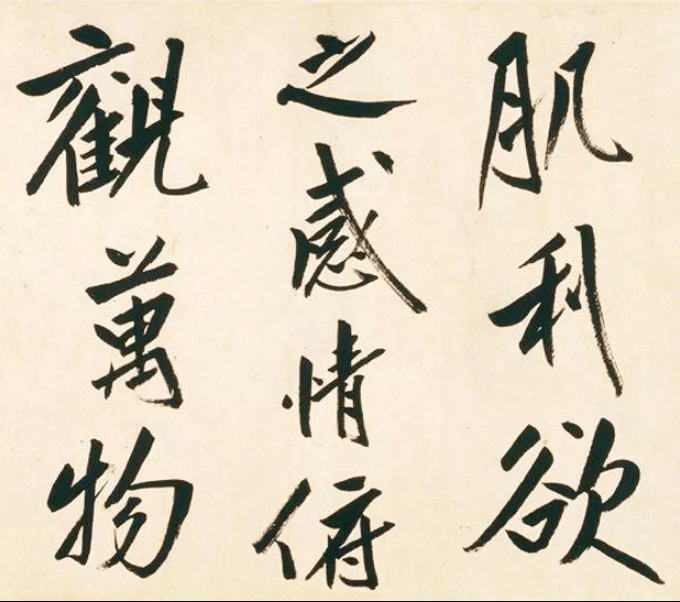 肌利欲
之感情俯
觀萬物